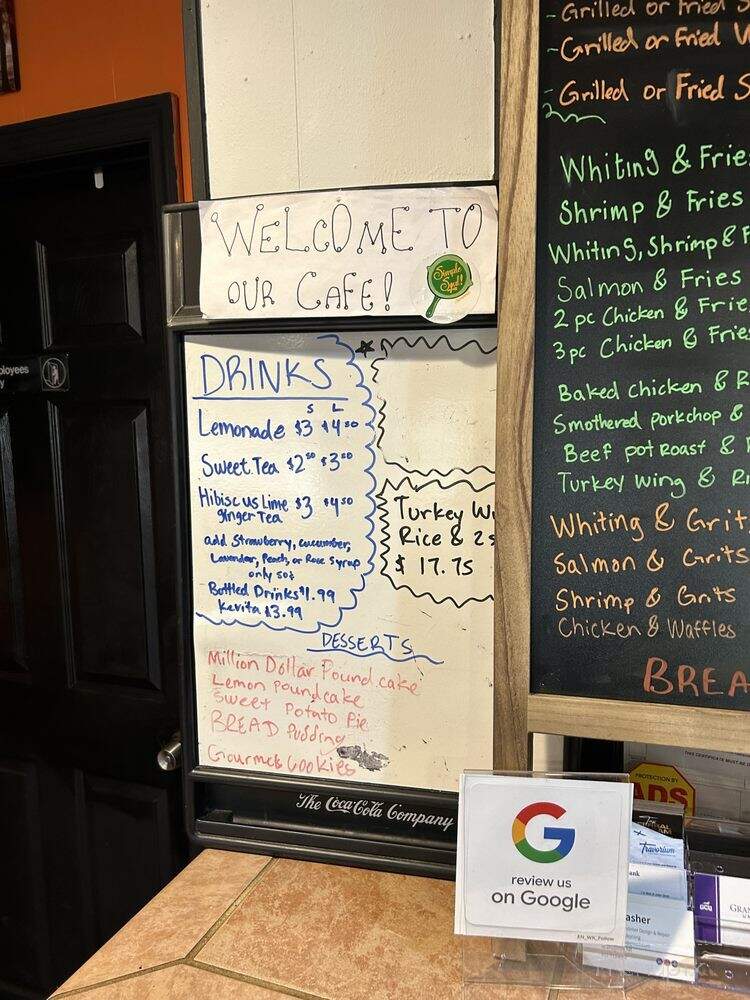 WELCOME TO
OUR CAFE!
Simple
Soul!
DRINKS
S L
Lemonade $3 $4⁵⁰
Sweet Tea $2⁵⁰ $3⁵⁰
Hibiscus Lime $3 $4⁵⁰
ginger Tea
add Strawberry, cucumber,
Lavender, Peach, or Rose Syrup
only 50¢
Bottled Drinks $1.99
Kevita $3.99
Turkey W
Rice & 2 s
$ 17.75
DESSERTS
Million Dollar Pound cake
Lemon poundcake
Sweet Potato Pie
BREAD Pudding
Gourmet Cookies
The Coca-Cola Company
- Grilled or Fried S
- Grilled or Fried W
- Grilled or Fried S
Whiting & Frie
Shrimp & Fries
Whiting, Shrimp & F
Salmon & Fries
2 pc Chicken & Frie
3 pc Chicken & Frie
Baked Chicken & R
Smothered porkchop &
Beef pot Roast &
Turkey wing & Ri
Whiting & Grit
Salmon & Grits
Shrimp & Grits
Chicken & Waffles
BREA
ployees
y
G
review us
on Google
EN_WK_Follow
THIS CERTIFICATE MUST BE
PROTECTION BY
ADS
Travorium
ank
asher
GRAN